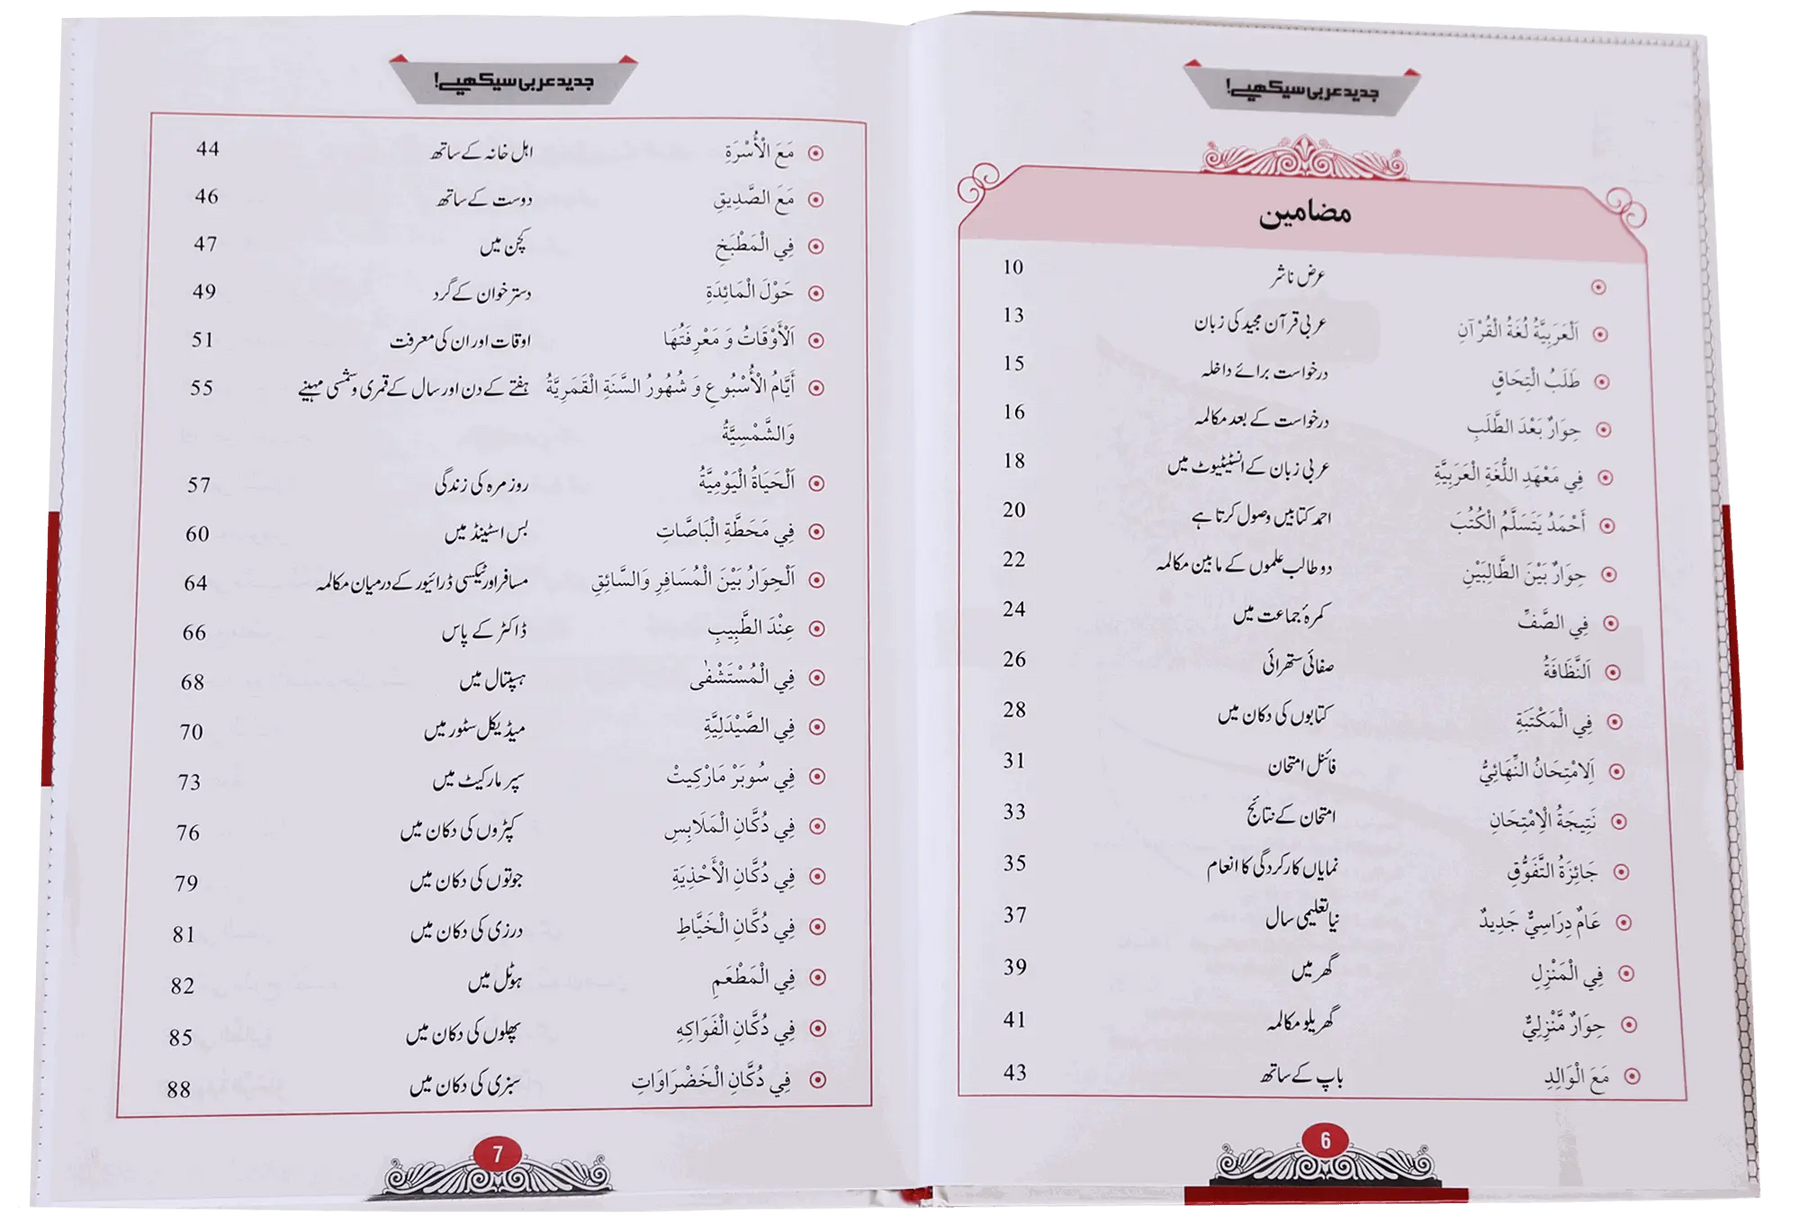 جدید عربی سیکھیے!
مضامین
عرض ناشر 10
اَلْعَرَبِيَّةُ لُغَةُ الْقُرْآنِ عربی قرآن مجید کی زبان 13
طَلَبُ الْتِحَاقٍ درخواست برائے داخلہ 15
حِوَارٌ بَعْدَ الطَّلَبِ درخواست کے بعد مکالمہ 16
فِي مَعْهَدِ اللُّغَةِ الْعَرَبِيَّةِ عربی زبان کے انسٹیٹیوٹ میں 18
أَحْمَدُ يَتَسَلَّمُ الْكُتُبَ احمد کتابیں وصول کرتا ہے 20
حِوَارٌ بَيْنَ الطَّالِبَيْنِ دو طالب علموں کے مابین مکالمہ 22
فِي الصَّفِّ کمرۂ جماعت میں 24
اَلنَّظَافَةُ صفائی ستھرائی 26
فِي الْمَكْتَبَةِ کتابوں کی دکان میں 28
اَلِامْتِحَانُ النِّهَائِيُّ فائنل امتحان 31
نَتِيجَةُ الْاِمْتِحَانِ امتحان کے نتائج 33
جَائِزَةُ التَّفَوُّقِ نمایاں کارکردگی کا انعام 35
عَامٌ دِرَاسِيٌّ جَدِيدٌ نیا تعلیمی سال 37
فِي الْمَنْزِلِ گھر میں 39
حِوَارٌ مَّنْزِلِيٌّ گھریلو مکالمہ 41
مَعَ الْوَالِدِ باپ کے ساتھ 43
6
جدید عربی سیکھیے!
مَعَ الْأُسْرَةِ اہل خانہ کے ساتھ 44
مَعَ الصَّدِيقِ دوست کے ساتھ 46
فِي الْمَطْبَخِ کچن میں 47
حَوْلَ الْمَائِدَةِ دستر خوان کے گرد 49
اَلْأَوْقَاتُ وَ مَعْرِفَتُهَا اوقات اور ان کی معرفت 51
أَيَّامُ الْأُسْبُوعِ وَ شُهُورُ السَّنَةِ الْقَمَرِيَّةُ ہفتے کے دن اور سال کے قمری و شمسی مہینے 55
وَالشَّمْسِيَّةُ
اَلْحَيَاةُ الْيَوْمِيَّةُ روز مرہ کی زندگی 57
فِي مَحَطَّةِ الْبَاصَّاتِ بس اسٹینڈ میں 60
اَلْحِوَارُ بَيْنَ الْمُسَافِرِ وَالسَّائِقِ مسافر اور ٹیکسی ڈرائیور کے درمیان مکالمہ 64
عِنْدَ الطَّبِيبِ ڈاکٹر کے پاس 66
فِي الْمُسْتَشْفٰى ہسپتال میں 68
فِي الصَّيْدَلِيَّةِ میڈیکل سٹور میں 70
فِي سُوبَرْ مَارْكِيتْ سپر مارکیٹ میں 73
فِي دُكَّانِ الْمَلَابِسِ کپڑوں کی دکان میں 76
فِي دُكَّانِ الْأَحْذِيَةِ جوتوں کی دکان میں 79
فِي دُكَّانِ الْخَيَّاطِ درزی کی دکان میں 81
فِي الْمَطْعَمِ ہوٹل میں 82
فِي دُكَّانِ الْفَوَاكِهِ پھلوں کی دکان میں 85
فِي دُكَّانِ الْخَضْرَاوَاتِ سبزی کی دکان میں 88
7